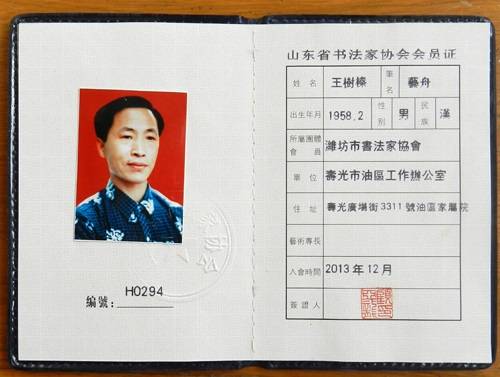 编號：H0294
山东省书法家协会会员证
姓名 王樹榛 筆名 藝舟
出生年月 1958.2 性別 男 民族 漢
所屬團體會員 濰坊市書法家協會
單位 壽光市油區工作辦公室
住址 壽光廣場街3311號油區家屬院
藝術專長
入會時間 2013年12月
簽證人